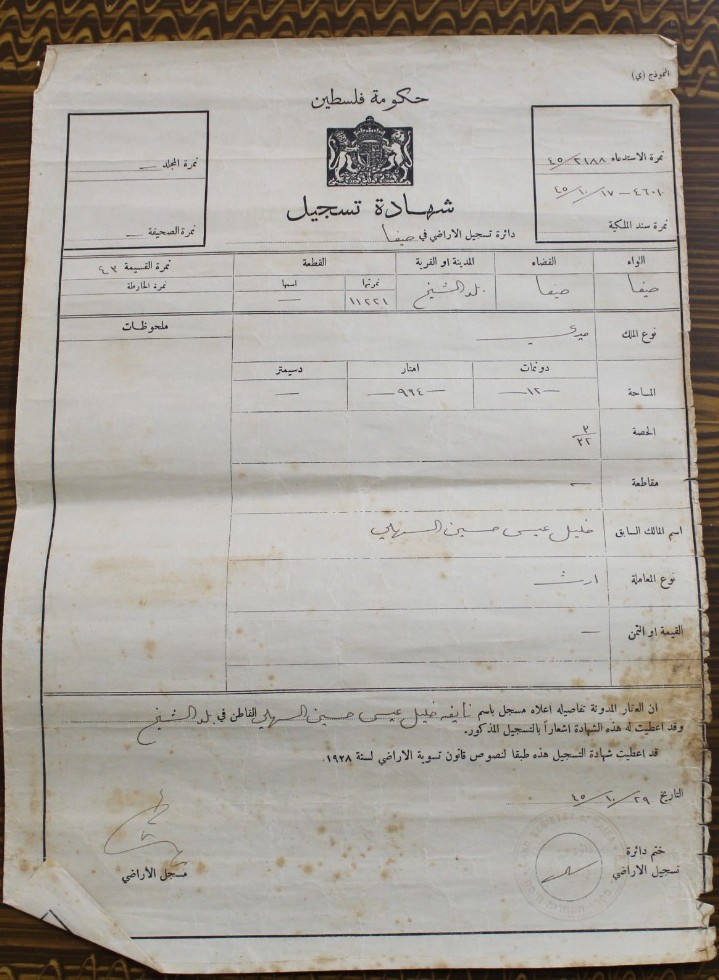 النموذج (ي)
حكومة فلسطين
نمرة الاستدعاء ٢١٨٨/٤٥
٤٦٠١ - ١٧/١٠/٤٥
نمرة سند الملكية
نمرة المجلد —
نمرة الصحيفة —
شهادة تسجيل
دائرة تسجيل الاراضي في حيفا
اللواء القضاء المدينة او القرية القطعة نمرة القسيمة ٤٣
نمرتها اسمها نمرة الخارطة
حيفا حيفا بلد الشيخ ١١٢٢١ —
نوع الملك ميري
ملحوظات
دونمات امتار دسيمتر
المساحة —١٢— —٩٦٤— —
الحصة ٣/٣٢
مقاطعة —
اسم المالك السابق خليل عيسى حسين السهلي
نوع المعاملة ارث
القيمة او الثمن —
ان العقار المدونة تفاصيله اعلاه مسجل باسم نايفه خليل عيسى حسين السهلي القاطن في بلد الشيخ
وقد اعطيت له هذه الشهادة اشعاراً بالتسجيل المذكور.
قد اعطيت شهادة التسجيل هذه طبقا لنصوص قانون تسوية الاراضي لسنة ١٩٢٨.
التاريخ ٢٩/١٠/٤٥
ختم دائرة
تسجيل الاراضي
مسجل الاراضي